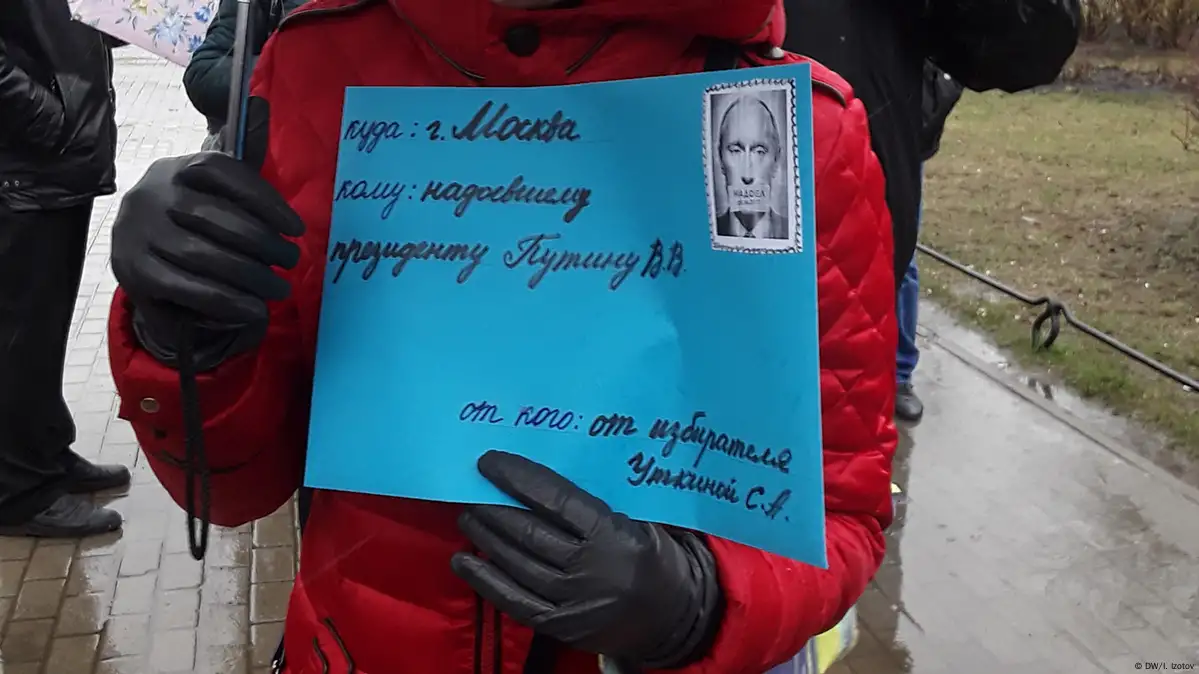 куда: г. Москва
НАДОЕЛ
кому: надоевшему
президенту Путину В.В.
от кого: от избирателя
Уткиной С.А.
© DW/I. Izotov